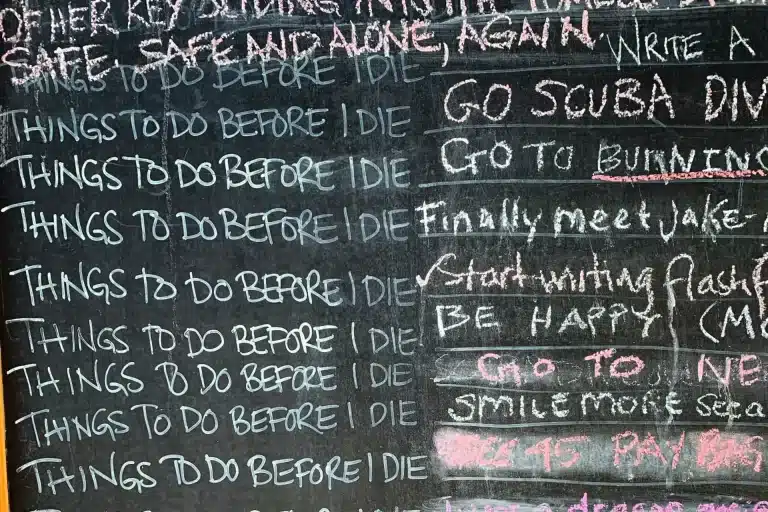 OF HER KEY SLIDING INTO THE
SAFE, SAFE AND ALONE, AGAIN.
THINGS TO DO BEFORE I DIE WRITE A
THINGS TO DO BEFORE I DIE GO SCUBA DIV
THINGS TO DO BEFORE I DIE GO TO BURNING
THINGS TO DO BEFORE I DIE Finally meet Jake-
THINGS TO DO BEFORE I DIE Start writing flash f
THINGS TO DO BEFORE I DIE BE HAPPY (MO
THINGS TO DO BEFORE I DIE GO TO NE
THINGS TO DO BEFORE I DIE SMILE MORE
THINGS TO DO BEFORE I DIE PAY
THINGS TO DO BEFORE I DIE a